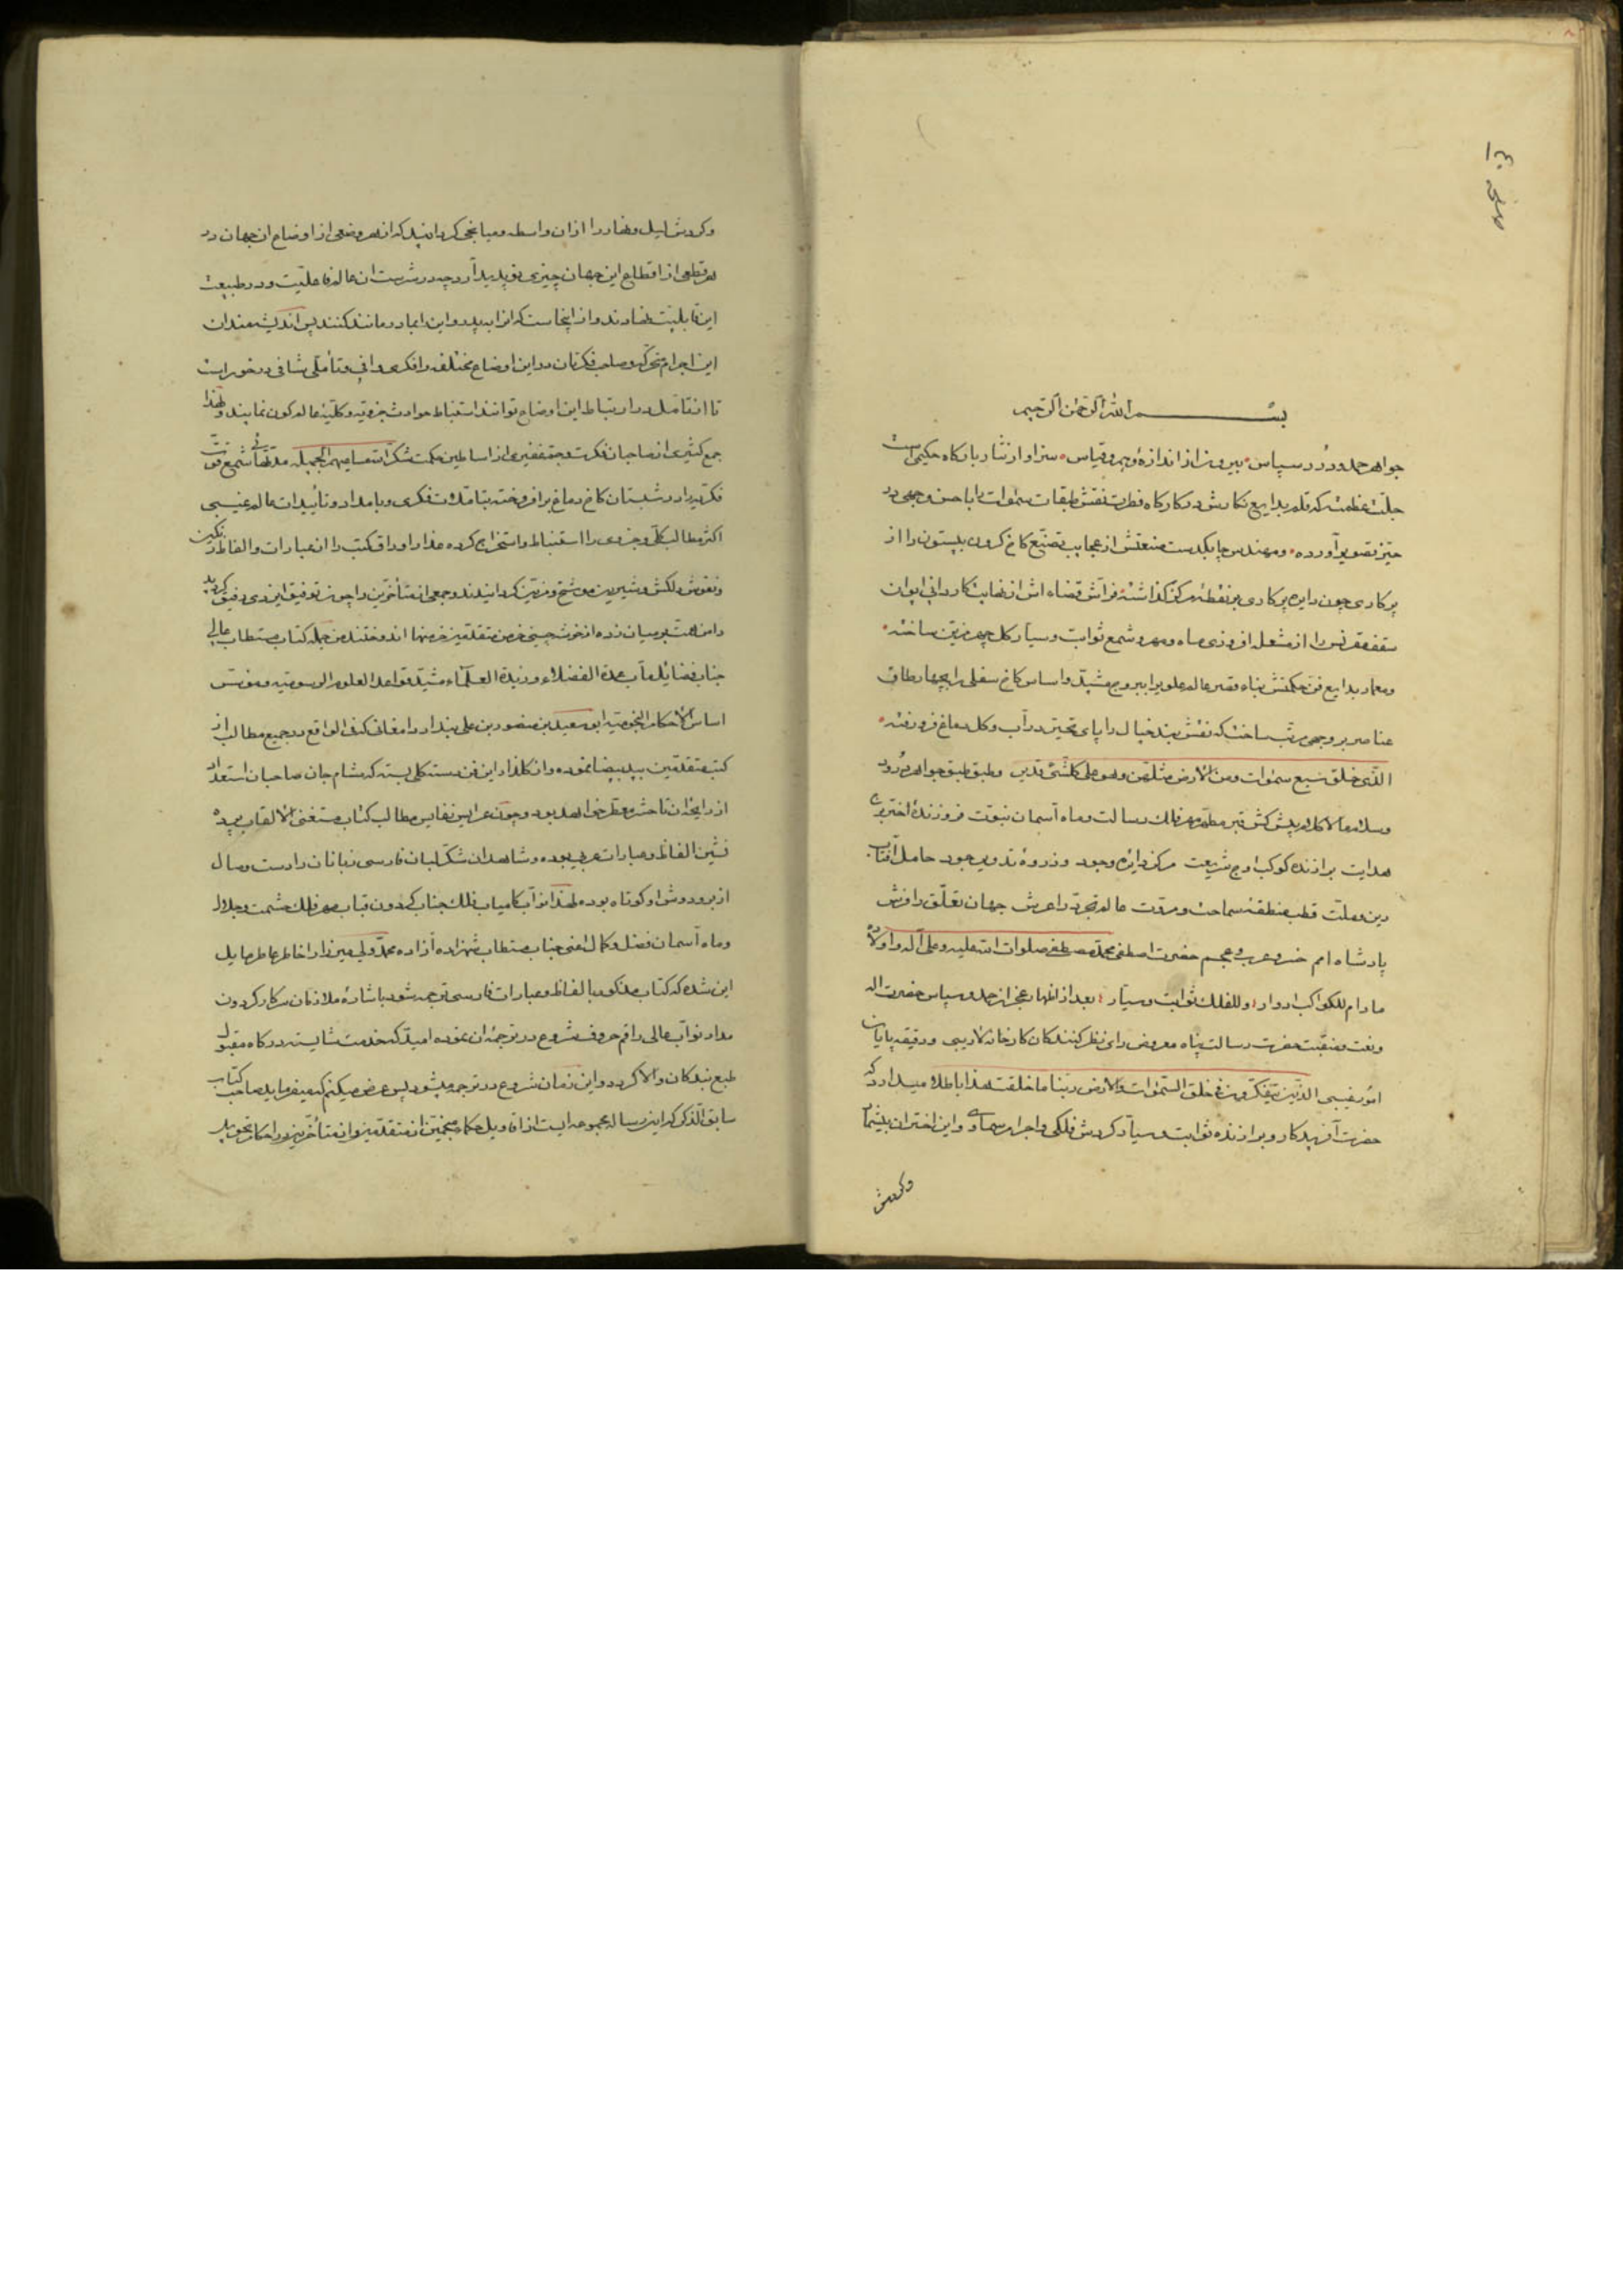 بسم الله الرحمن الرحیم
جواهر حمد و درر سپاس بیرون از اندازهٔ وهم و قیاس سزاوار نثار بارگاه حکیمی است
جلّت عظمته که قلم بدایع نگارش در کارگاه فطرت نقش طبقات سموات را باحسن وجهی در
حیّز تصویر آورده و مهندس چابکدست صنعتش از عجایب تصنیع کاخ گردون بیستون را از
پرکاری چون دایره پرکاری بر نقطه مرکز گذاشته فرّاش قضاء اش از نهایت کاردانی ایوان
سقف مقرنس را از مشعله افروزی ماه و مهر و شمع ثوابت و سیار کل چهر مزین ساخته
و معمار بدایع فن حکمتش بناء قصر عالم علوی را ببروج مشیّد و اساس کاخ سفلی را بچهار طاق
عناصر بر وجهی مرتب ساخت که نقش بند خیال را پای تحیّر در آب و کل دماغ فرو رفته
الّذی خلق سبع سموات ومن الارض مثلهن وهو علی کلشئ قدیر و طبق طبق جواهر درود
و سلام مالا کلام پیش کش قبر مطهر مهر فلک رسالت و ماه آسمان نبوّت فروزندهٔ اختر برج
هدایت برازنده کوکب اوج شریعت مرکز دایرهٔ وجود و ذروهٔ تدویر جود حامل آفتاب
دین و ملّت قطب منطقهٔ سماحت و مروّت عالم تجرّد را عرش جهان تعلّق را فرش
پادشاه امم خسرو عرب و عجم حضرت اصطفی محمّد مصطفی صلوات الله علیه و علی آله و اولاده
مادام للکواکب ادوار و للفلک ثوابت و سیّار بعد از اظهار عجز از حمد و سپاس حضرت اله
و نعت و منقبت حضرت رسالت پناه معروض رای نظر کنندکان کارخانهٔ لاریبی و دقیقه یابان
امور غیبی الذین یتفکّرون فی خلق السّموات والارض ربّنا ما خلقت هذا باطلا میدارد که
حضرت آفریدکار و برازنده ثوابت و سیّار کردش فلکی و اجرام سماوی و این اختران بیشمار
و کردش
و کردش لیل و نهار را از آن واسطه و میانجی کردانید که از هر وضعی از اوضاع ان جهان در
هر قطعی از اقطاع این جهان چیزی نو پدید آرد چه در سرشت ان عالم فاعلیّت و در طبیعت
این قابلیّت نهادند و از اینجاست که انرا بپدر و این را بمادر مانند کنند پس اندیشمندان
این اجرام متحرّکه و صاحب فکرتان در این اوضاع مختلفه را فکری وافی و تأملی شافی در خور است
تا از تأمّل در ارتباط این اوضاع توانند استنباط حوادث جزویّه و کلیّهٔ عالم کون نمایند و لهذا
جمع کثیری از صاحبان فکرت و جم غفیری از اساطین حکمت شکر الله مساعیهم الجمیله شمع قوّت
فکریه را در شبستان کاخ دماغ برافروخته بتأملات فکری و بامداد و تأییدات عالم غیبی
اکثر مطالب کلّی و جزوی را استنباط و استخراج کرده عذار اوراق کتب را از عبارات و الفاظ رنکین
و نقوش دلکش و شیرین موشّح و مزیّن کردانیدند و جمعی از متأخّرین را چون توفیق ایزدی رفیق کردید
دامن همّت بر میان زده از خوشه چینی خرمن متقدّمین خرمنها اندوختند من جمله کتاب مستطاب عالی
جناب فضایل مآب عمدة الفضلاء و زبدة العلماء مشیّد قواعد العلوم الرسومیّه و مؤسّس
اساس الاحکام النجومیّه ابو سعید بن منصور بن علی بندار دامغانی که فی الواقع در جمیع مطالب از
کتب متقدّمین ید بیضا نموده و از کلزار این فن دسته کلی بسته که مشام جان صاحبان استعداد
از رایحهٔ ان تا حشر معطّر خواهد بود و چون عرایس نفایس مطالب کتاب مستغنی الالقاب پرده
نشین الفاظ و عبارات عربی بوده و شاهدان شکّر لبان فارسی زبانان را دست وصال
از بر و دوش او کوتاه بوده لهذا نوّاب کامیاب فلک جناب کردون قباب مهر فلک حشمت و جلال
و ماه آسمان فضل و کمال اعنی جناب مستطاب شهزاده آزاده محمّد ولی میرزا را خاطر عاطر مایل
این شده که کتاب مذکور بالفاظ و عبارات فارسی ترجمه شود باشارهٔ ملازمان سرکار کردون
مدار نوّاب عالی راقم حروف شروع در ترجمهٔ ان نموده امید که خدمت شایسته درکاه مقبول
طبع بندکان والا کردد و این زمان شروع در ترجمه میشود پس عرض میکنم که میفرماید صاحب کتاب
سابق الذکر که این رساله مجموعه ایست از اقاویل حکماء منجّمین از متقدّمین و از متأخّرین در احکام تحویل